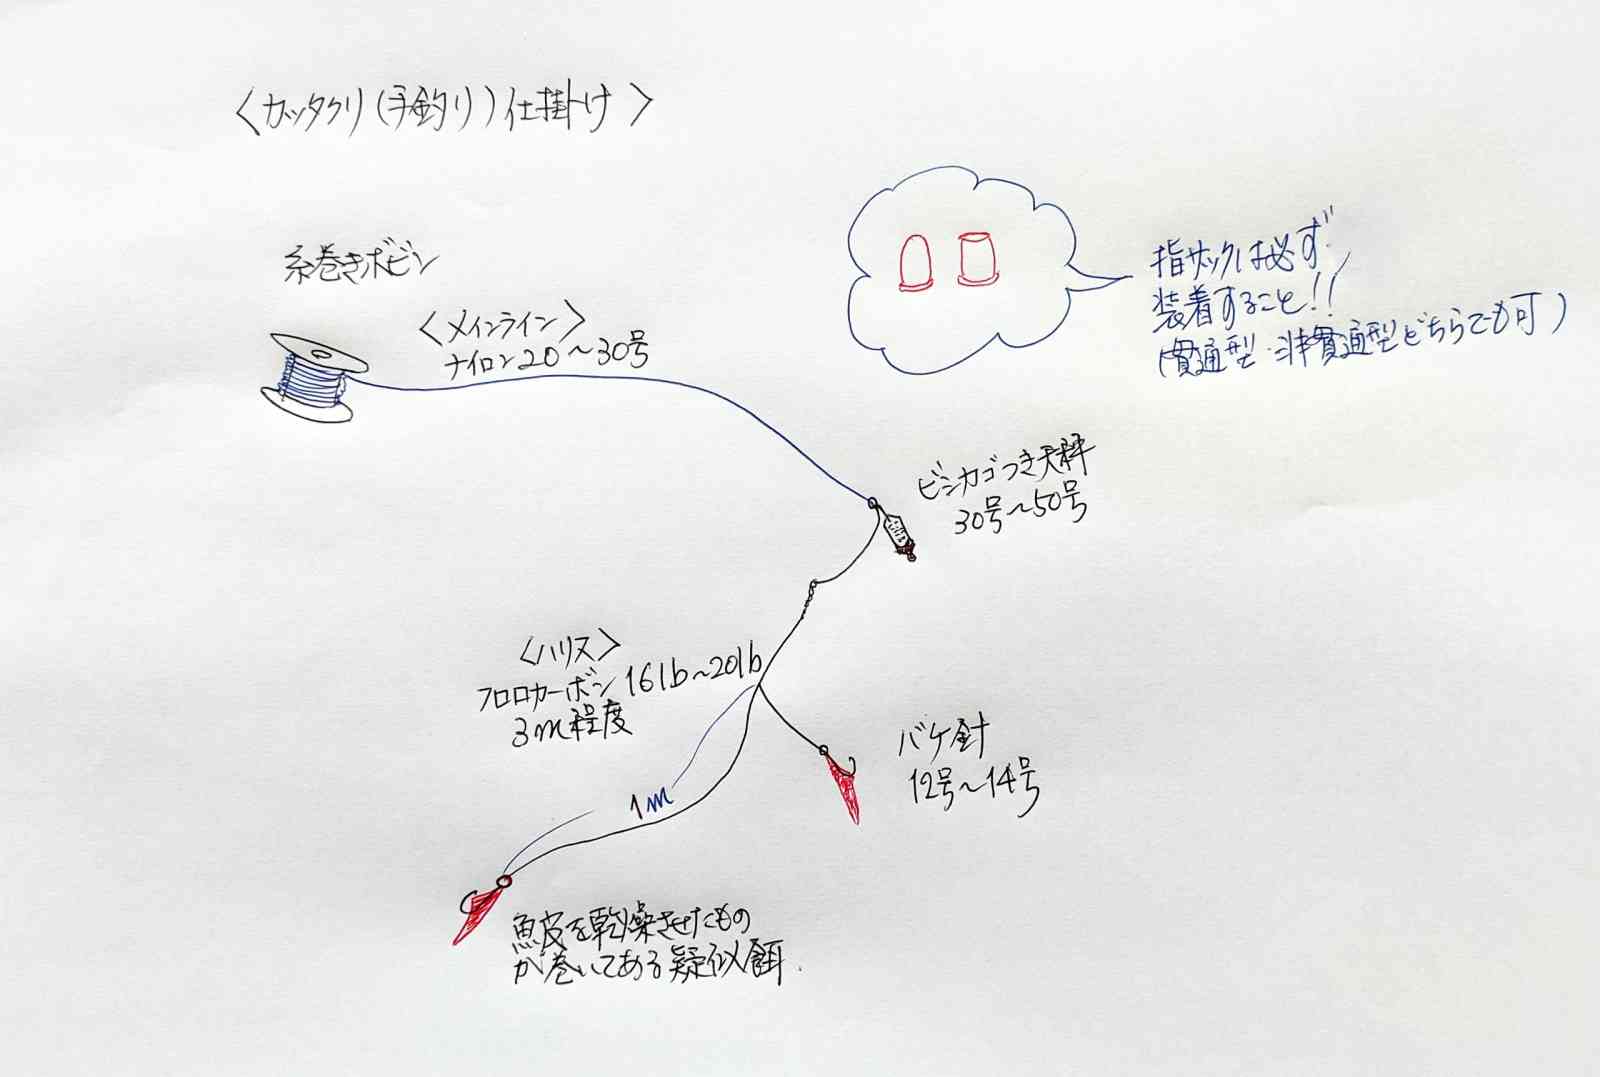 〈カッタクリ(手釣り)仕掛け〉
糸巻きボビン
〈メインライン〉
ナイロン20〜30号
指サックは必ず
装着すること!!
(貫通型・非貫通型どちらでも可)
ビシカゴつき天秤
30号〜50号
〈ハリス〉
フロロカーボン16lb〜20lb
3m程度
バケ針
12号〜14号
1m
魚皮を乾燥させたもの
が巻いてある疑似餌.